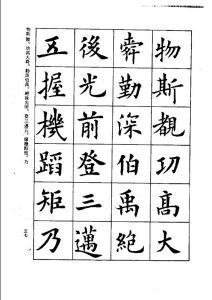 物斯觀功高大
舜勤深伯禹絕
後光前登三邁
五握機蹈矩乃
物斯觀，功高大舜，勤深伯禹，絕後光前，登三邁五，握機蹈矩，乃
三七